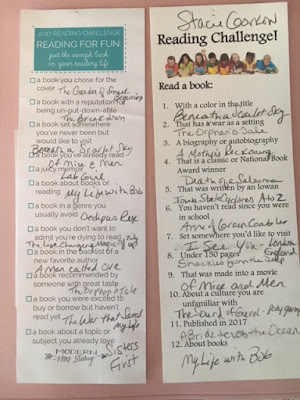 2017 READING CHALLENGE
READING FOR FUN
just the oomph back
in your reading life
a book you chose for the
cover The Garden of Small
Beginnings
a book with a reputation of
being un-put-down-able
The Breakdown
a book set somewhere
you've never been but
would like to visit
Beneath a Scarlet Sky
a book you've already read
Of Mice & Men
a juicy memoir
Lab Girl
a book about books or
reading My Life with Bob
a book in a genre you
usually avoid Oedipus Rex
a book you don't want to
admit you're dying to read
The Life Changing Magic of Tidy
Up
a book in the backlist of a
new favorite author
A man called Ove
a book recommended by
someone with great taste
The Orphan's Tale
a book you were excited
to buy or borrow but haven't
read yet The War that Saved
My Life
a book about a topic or
subject you already love
Sisters
MODERN First
Mrs Darcy
Stacie
Reading Challenge!
Read a book:
1. With a color in the title
Beneath a Scarlet Sky
2. That has war as a setting
The Orphan's Tale
3. A biography or autobiography
A Mother's Reckoning
4. That is a classic or National Book
Award winner
Death of a Salesman
5. That was written by an Iowan
Iowa State Cyclones A to Z
6. You haven't read since you were
in school
Ann of Green Gables
7. Set somewhere you'd like to
visit I See You - London
England
8. Under 150 pages
from the
9. That was made into a movie
Of Mice and Men
10. About a culture you are
unfamiliar with
The Sound of Gravel - polygamy
11. Published in 2017
A Bridge Across the Ocean
12. About books
My Life with Bob